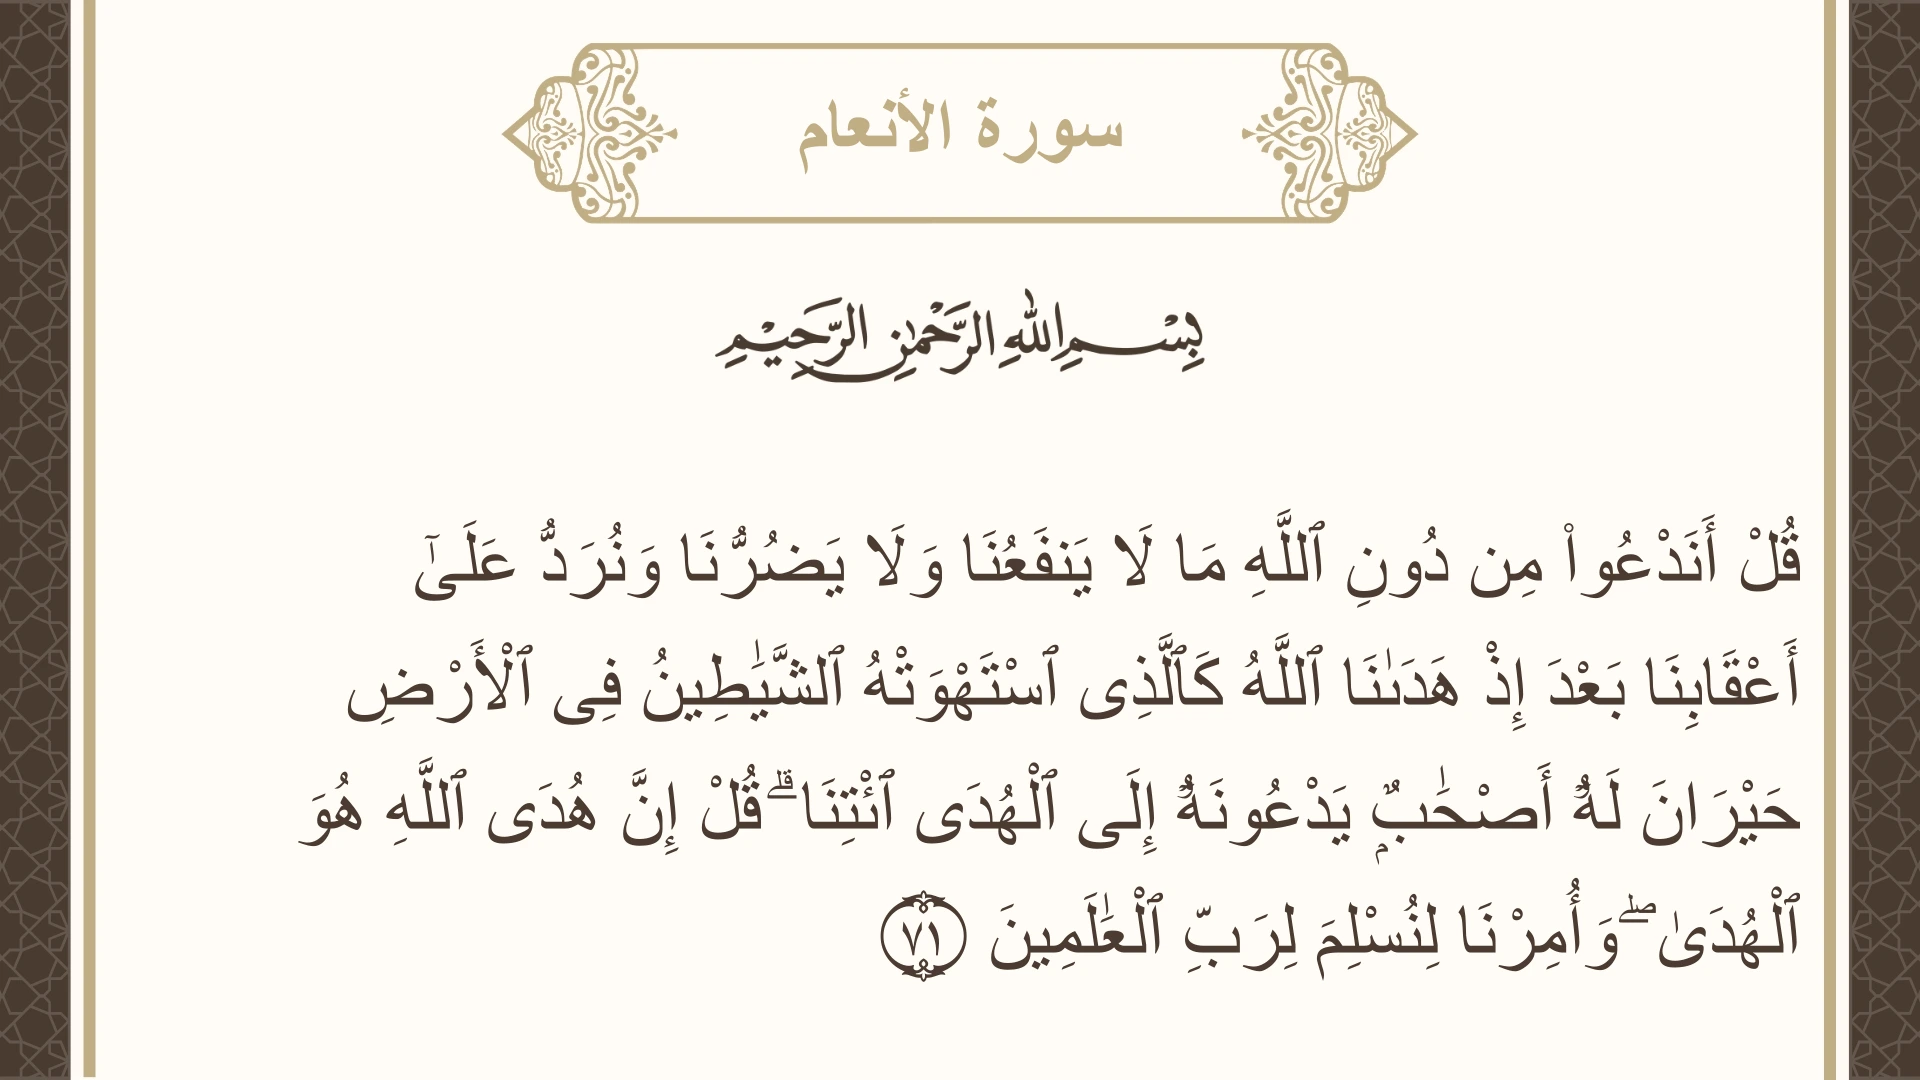 سورة الأنعام
بِسْمِ اللهِ الرَّحْمٰنِ الرَّحِيْمِ
قُلْ أَنَدْعُوا۟ مِن دُونِ ٱللَّهِ مَا لَا يَنفَعُنَا وَلَا يَضُرُّنَا وَنُرَدُّ عَلَىٰٓ
أَعْقَابِنَا بَعْدَ إِذْ هَدَىٰنَا ٱللَّهُ كَٱلَّذِى ٱسْتَهْوَتْهُ ٱلشَّيَـٰطِينُ فِى ٱلْأَرْضِ
حَيْرَانَ لَهُۥٓ أَصْحَـٰبٌۭ يَدْعُونَهُۥٓ إِلَى ٱلْهُدَى ٱئْتِنَا ۗ قُلْ إِنَّ هُدَى ٱللَّهِ هُوَ
ٱلْهُدَىٰ ۖ وَأُمِرْنَا لِنُسْلِمَ لِرَبِّ ٱلْعَـٰلَمِينَ ٧١